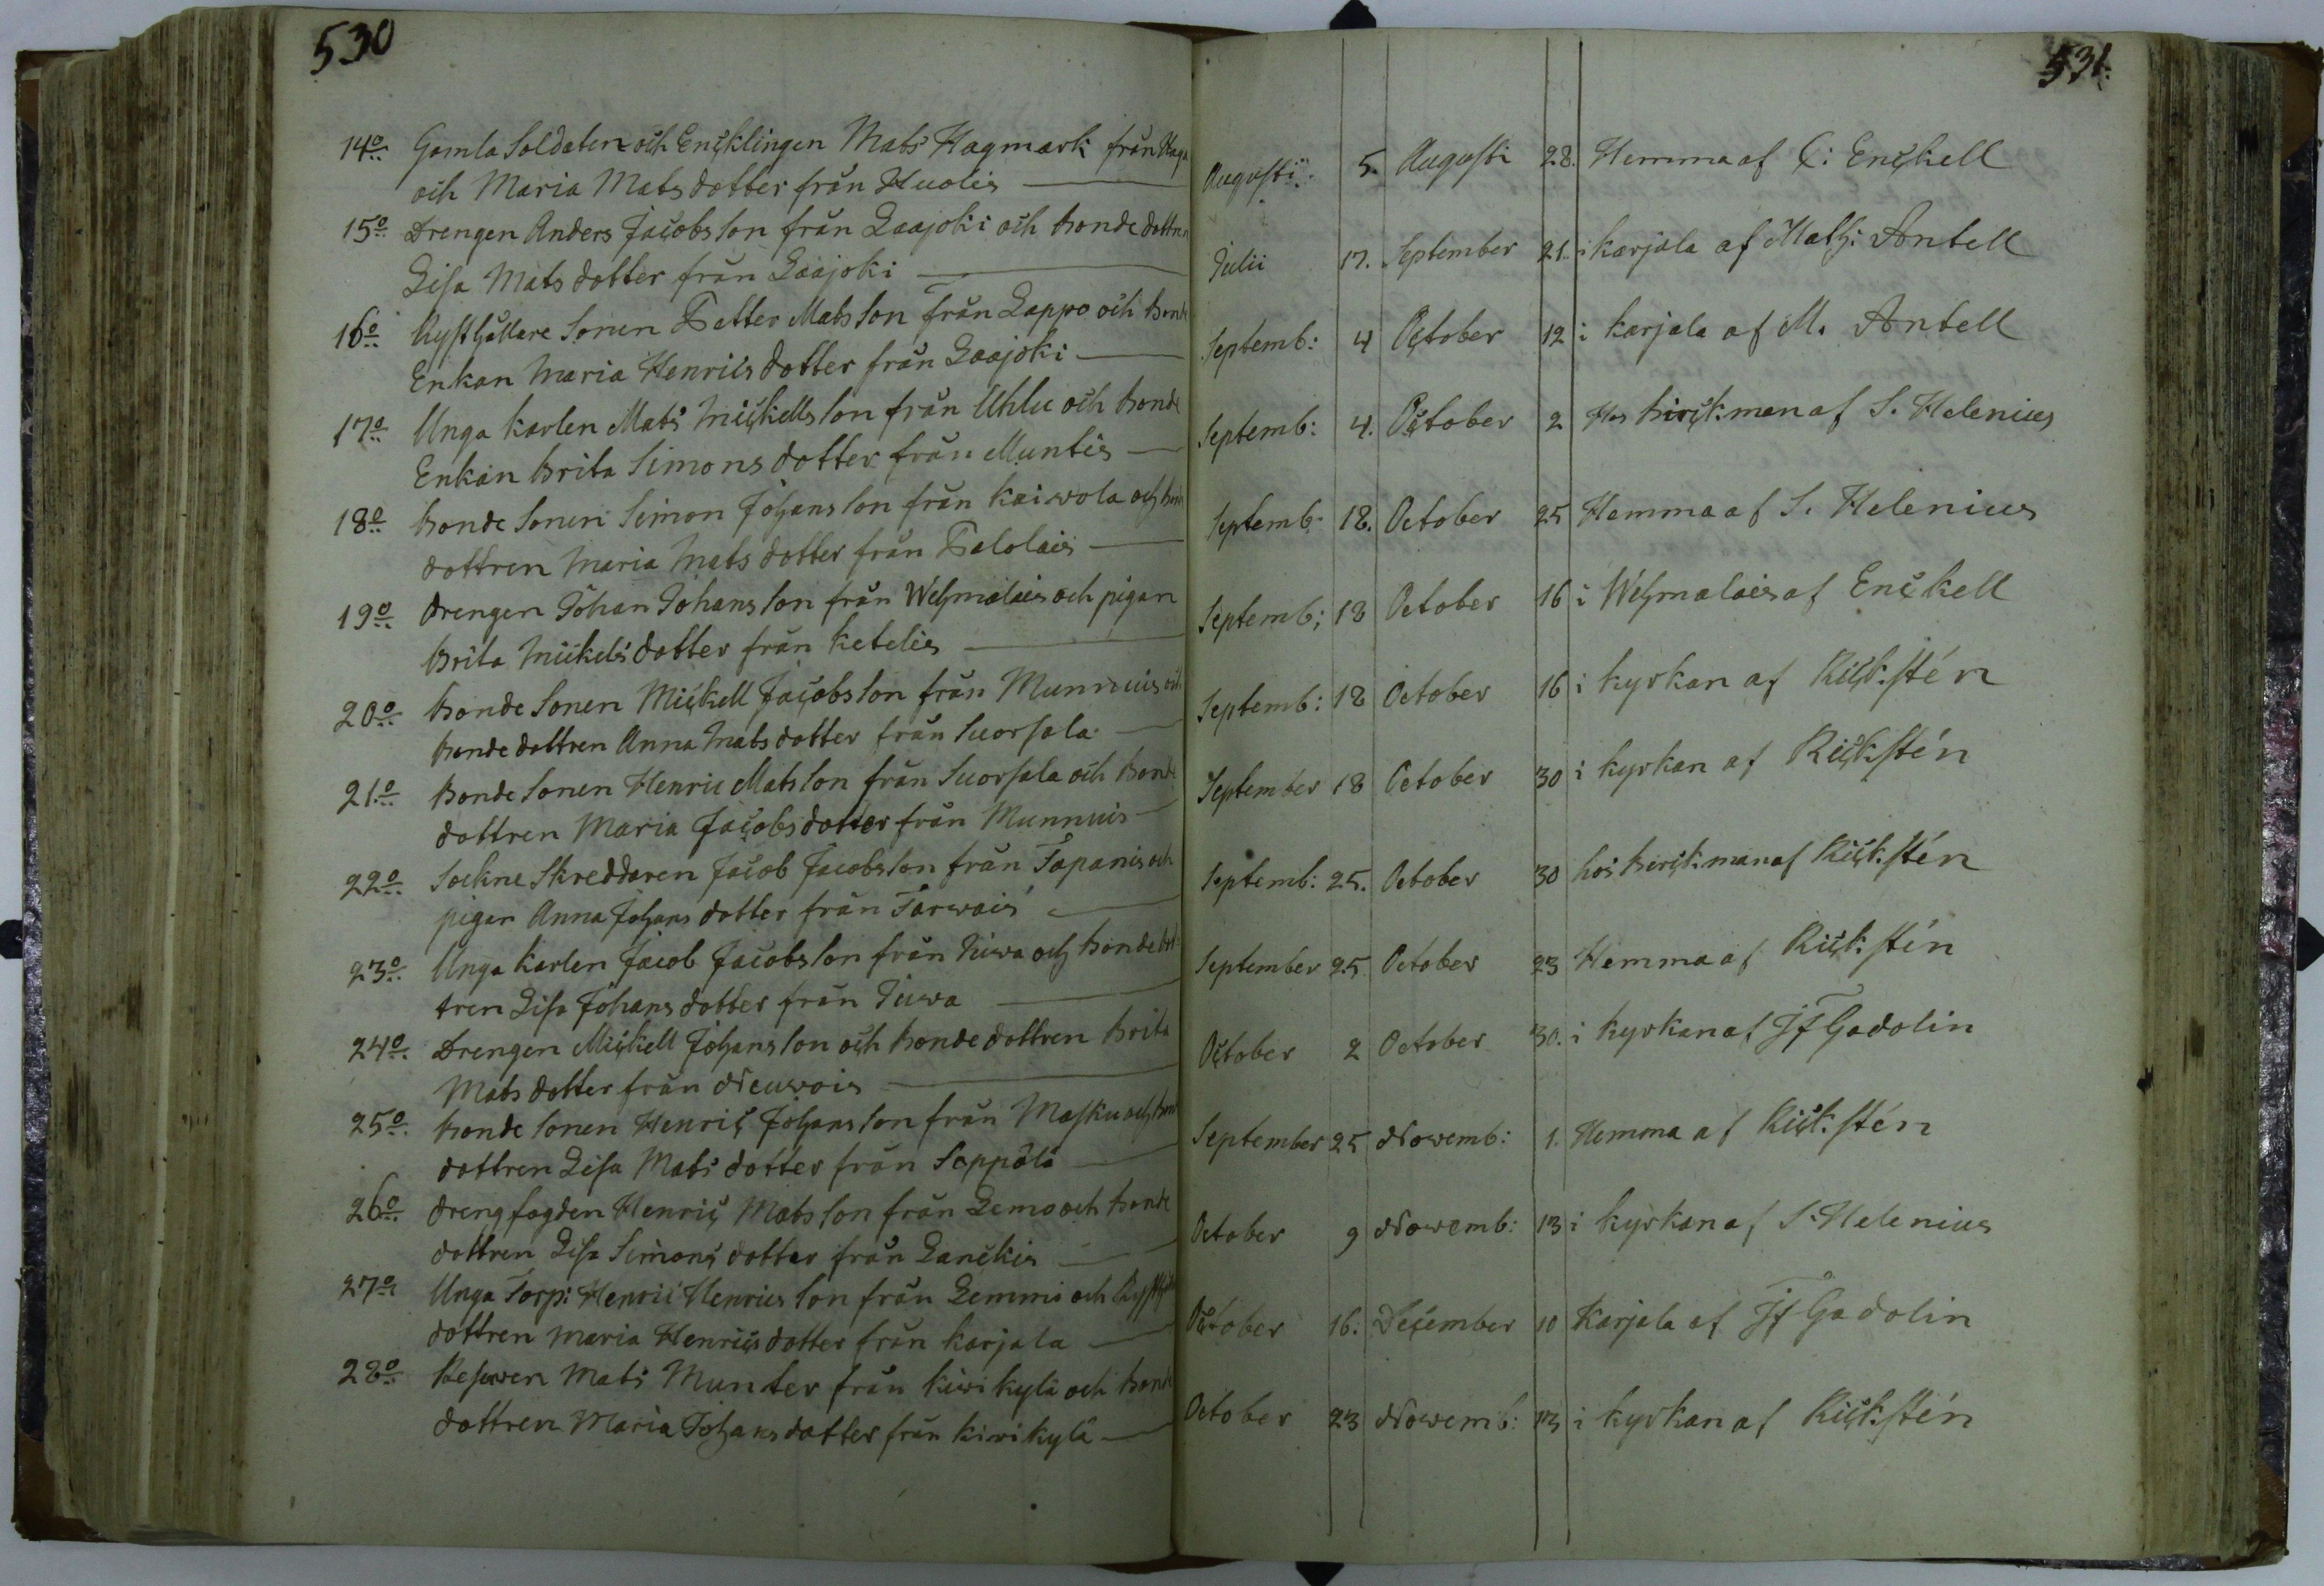 530
14o Gamla Soldaten och Encklingen Mats Hagmark från Haga
och Maria Mats dotter från Huolis
15o Drengen Anders Jacobs son från Laajoki och bonde dottren
Lisa Mats dotter från Laajoki
16o Rysthållare Sonen Petter Mats son från Lappo och bonde
Enkan Maria Henrics dotter från Laajoki
17o Unga karlen Mats Mickells son från Uhlu och bonde
Enkan Brita Simons dotter från Muntis
18o bonde Sonen Simon Johans son från kaiwola och bonde
dottren Maria Mats dotter från Palolais
19o drengen Johan Johans son från Wehmalais och pigan
Brita Mickels dotter från ketelis
20o bonde Sonen Mickell Jacobs son från Munnuis och
bonde dottren Anna Mats dotter från Suorsala
21o bonde Sonen Henric Mats son från Suorsala och bonde
dottren Maria Jacobs dotter från Munnuis
22o Sockne Skreddaren Jacob Jacobs son från Tapanis och
pigan Anna Johans dotter från Tarwais
23o Unga karlen Jacob Jacobs son från Juwa och bonde dot-
tren Lisa Johans dotter från Juwa
24o Drengen Mickell Johans son och bonde dottren Brita
Mats dotter från Neuwois
25o bonde Sonen Henric Johans son från Masku och bonde
dottren Lisa Mats dotter från Seppälä
26o dreng fogden Henric Mats son från Lemo och bonde
dottren Lisa Simons dotter från Lanckis
27o Unga Torp: Henric Henrics son från Lemmi och
dottren Maria Henrics dotter från karjala
28o Reserven Mats Munter från kiwikylä och bonde
dottren Maria Johans dotter från kiwikylä
531.
Augusti 5. Augusti 28. Hemma af C: Enckell
Julii 17. September 21. i karjala af Math: Antell
Septemb: 4 October 12 i karjala af M. Antell
Septemb: 4. October 2 Hos birck.man af S. Helenius
Septemb: 18. October 25 Hemma af S. Helenius
Septemb: 18 October 16 i Wehmalais af Enckell
Septemb: 18 October 16 i kyrkan af Rickstén
September 18 October 30 i kyrkan af Rickstén
Septemb: 25. October 30 hos birck.man af Rickstén
September 25 October 23 Hemma af Rickstén
October 2 October 30. i kyrkan af Jf Gadolin
September 25 Nowemb: 1. Hemma af Rickstén
October 9 Nowemb: 13 i kyrkan af S. Helenius
October 16. December 10 Karjala af Jf Gadolin
October 23 Nowemb: 13 i kyrkan af Rickstén